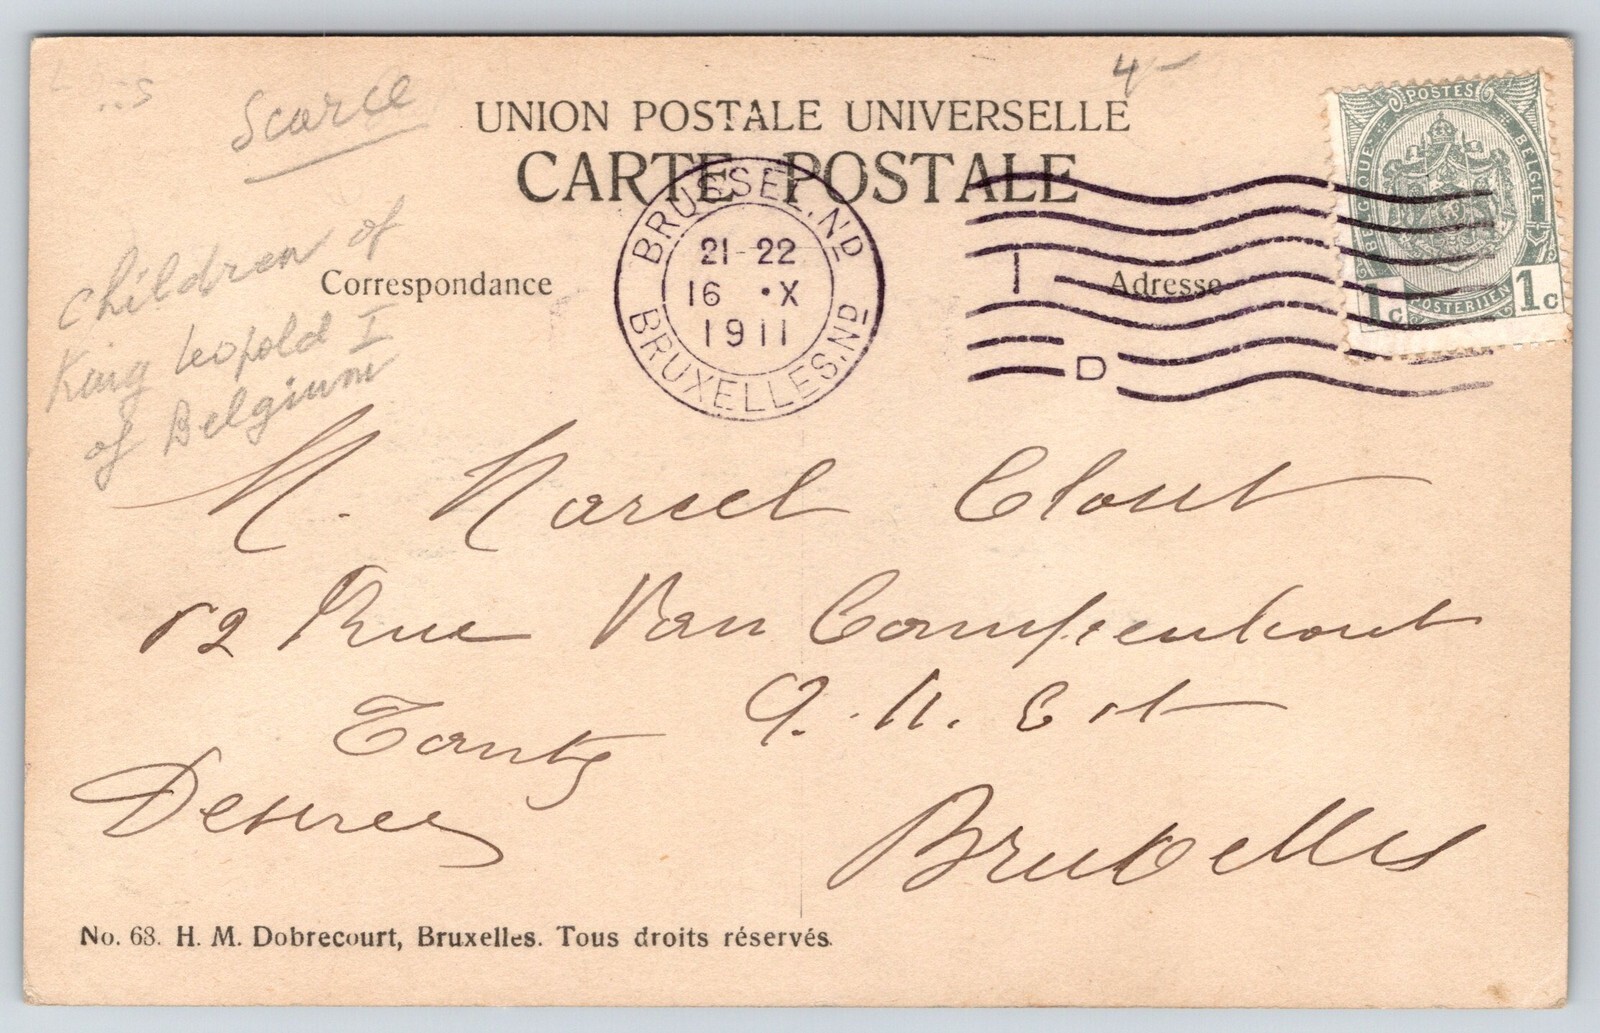 Scarce
4-
UNION POSTALE UNIVERSELLE
CARTE POSTALE
POSTES
BELGIQUE BELGIE
POSTERIJEN
1c 1c
BRUSSEL.ND
21-22
16 •X
1911
BRUXELLES.ND
1
D
Correspondance
Adresse
Children of
King Leopold I
of Belgium
M. Marcel Clout
82 Rue Van Campenhout
Q. N. Est
Tante
Desirée
Bruxelles
No. 68. H. M. Dobrecourt, Bruxelles. Tous droits réservés.